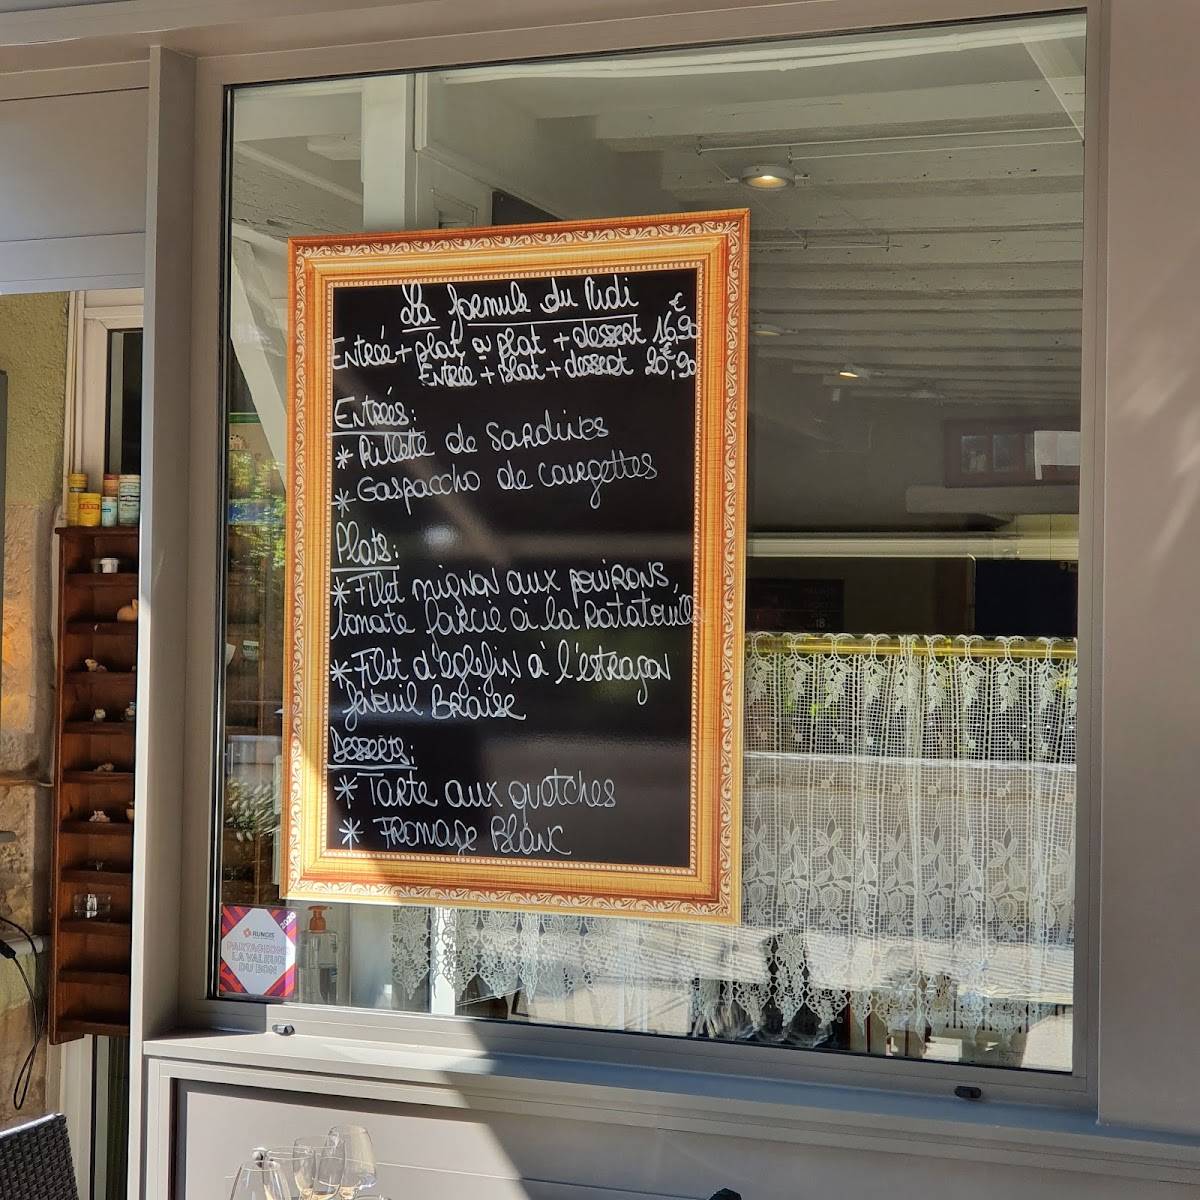 La formule du Midi
Entrée + plat ou plat + dessert 16,90€
Entrée + plat + dessert 20,90€
Entrées:
* Rillette de Sardines
* Gaspaccho de Courgettes
Plats:
* Filet mignon aux poivrons,
tomate farcie à la Ratatouille
* Filet d'églefin à l'estragon
fenouil Braisé
Desserts:
* Tarte aux quetches
* Fromage Blanc
2020
RUNGIS
PARTAGEONS
LA VALEUR
DU BON